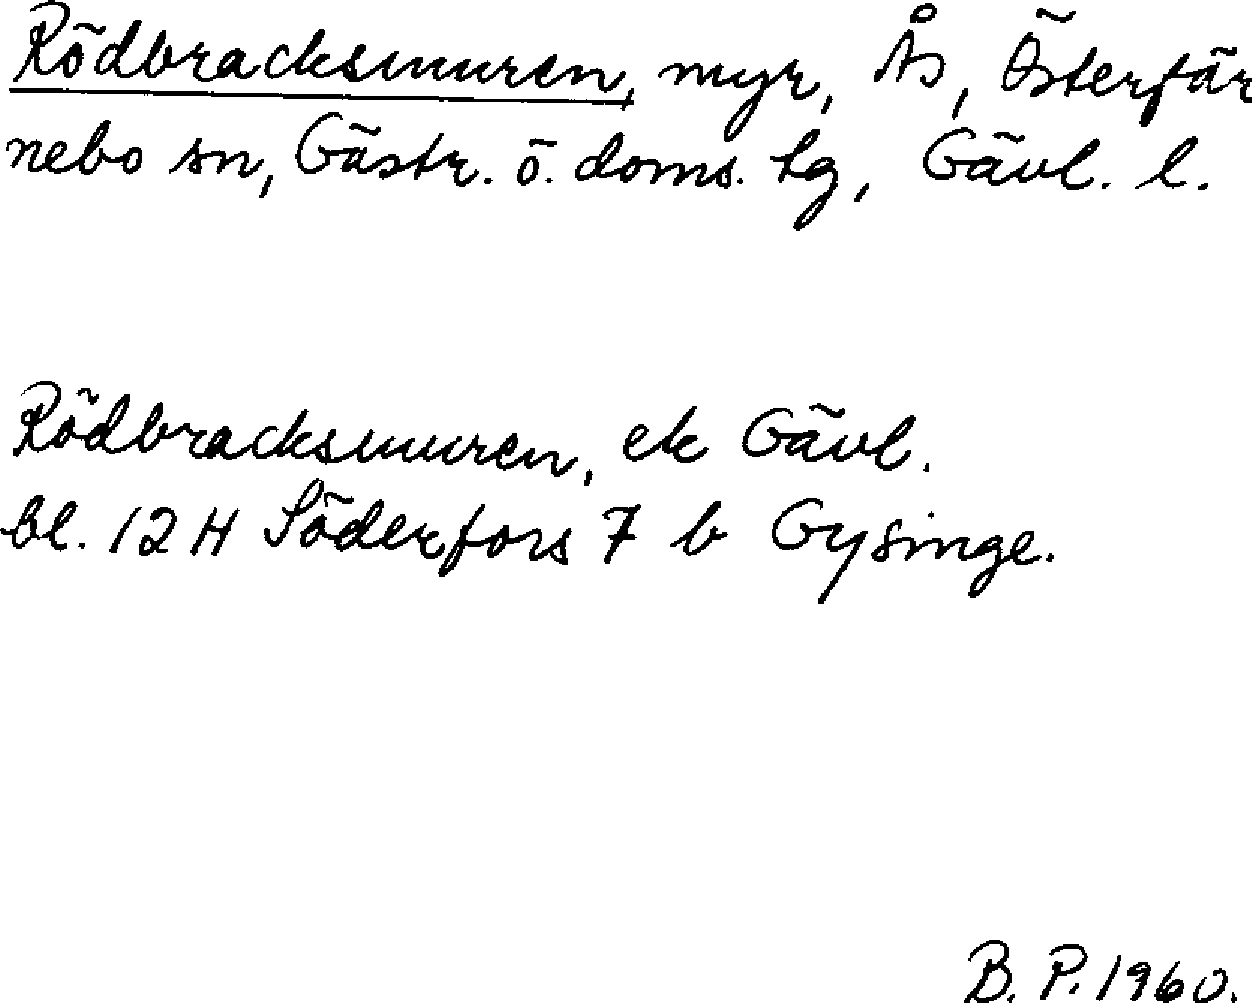 Rödbracksmuren, myr, Ås, Österfär
nebo sn, Gästr. ö. doms. tg, Gävl. l.
Rödbracksmuren, ek Gävl.
bl. 12 H Söderfors 7 b Gysinge.
B. P. 1960.